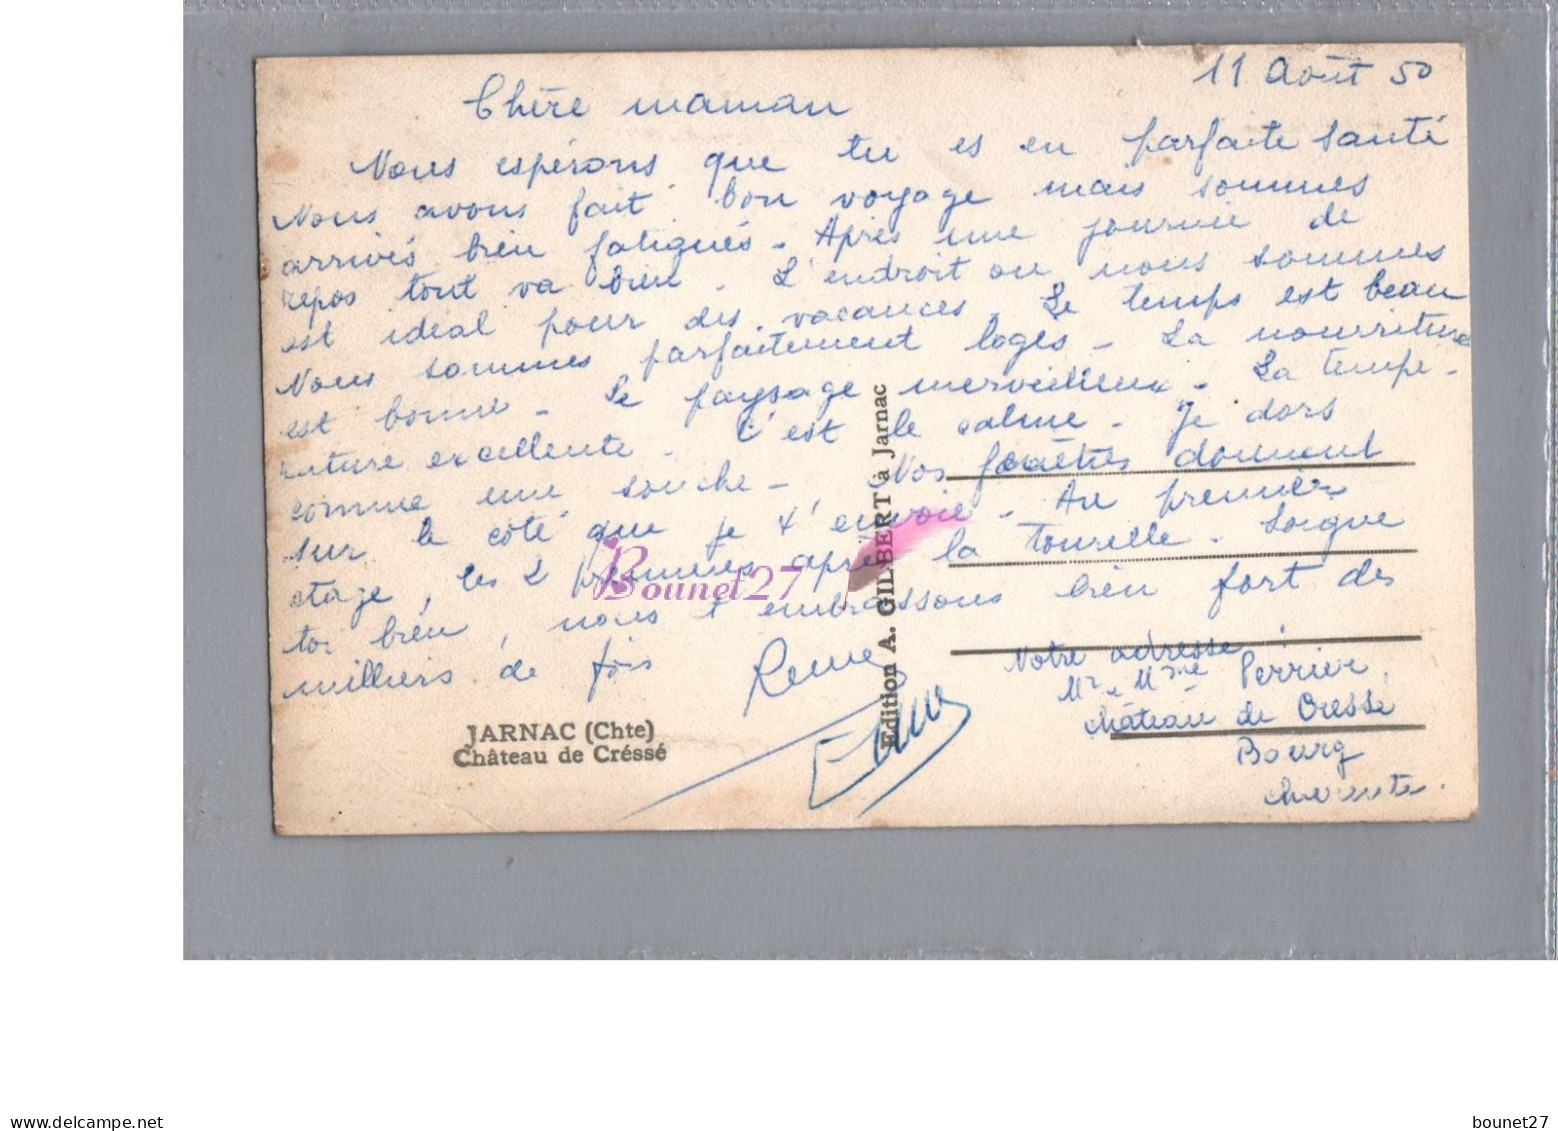 11 Août 50
Chère maman
Nous espérons que tu es en parfaite santé
Nous avons fait bon voyage mais sommes
arrivés bien fatigués - Après une journée de
repos tout va bien - L'endroit ou nous sommes
est ideal pour des vacances. Le temps est beau
Nous sommes parfaitement logés - La nourriture
est bonne - Le paysage merveilleux - La tempé-
rature excellente - C'est le calme - Je dors
comme une souche - Nos fenêtres donnent
sur le côté que je t'envoie - Au premier
étage, les 2 premières après la tourelle - Soigne
toi bien, nous t'embrassons bien fort des
milliers de fois
Notre adresse :
Mr & Mme Perrier
château de Cressé
Bourg
charente.
JARNAC (Chte)
Château de Créssé
Edition A. GILBERT à Jarnac
Bounet27
www.delcampe.net
bounet27